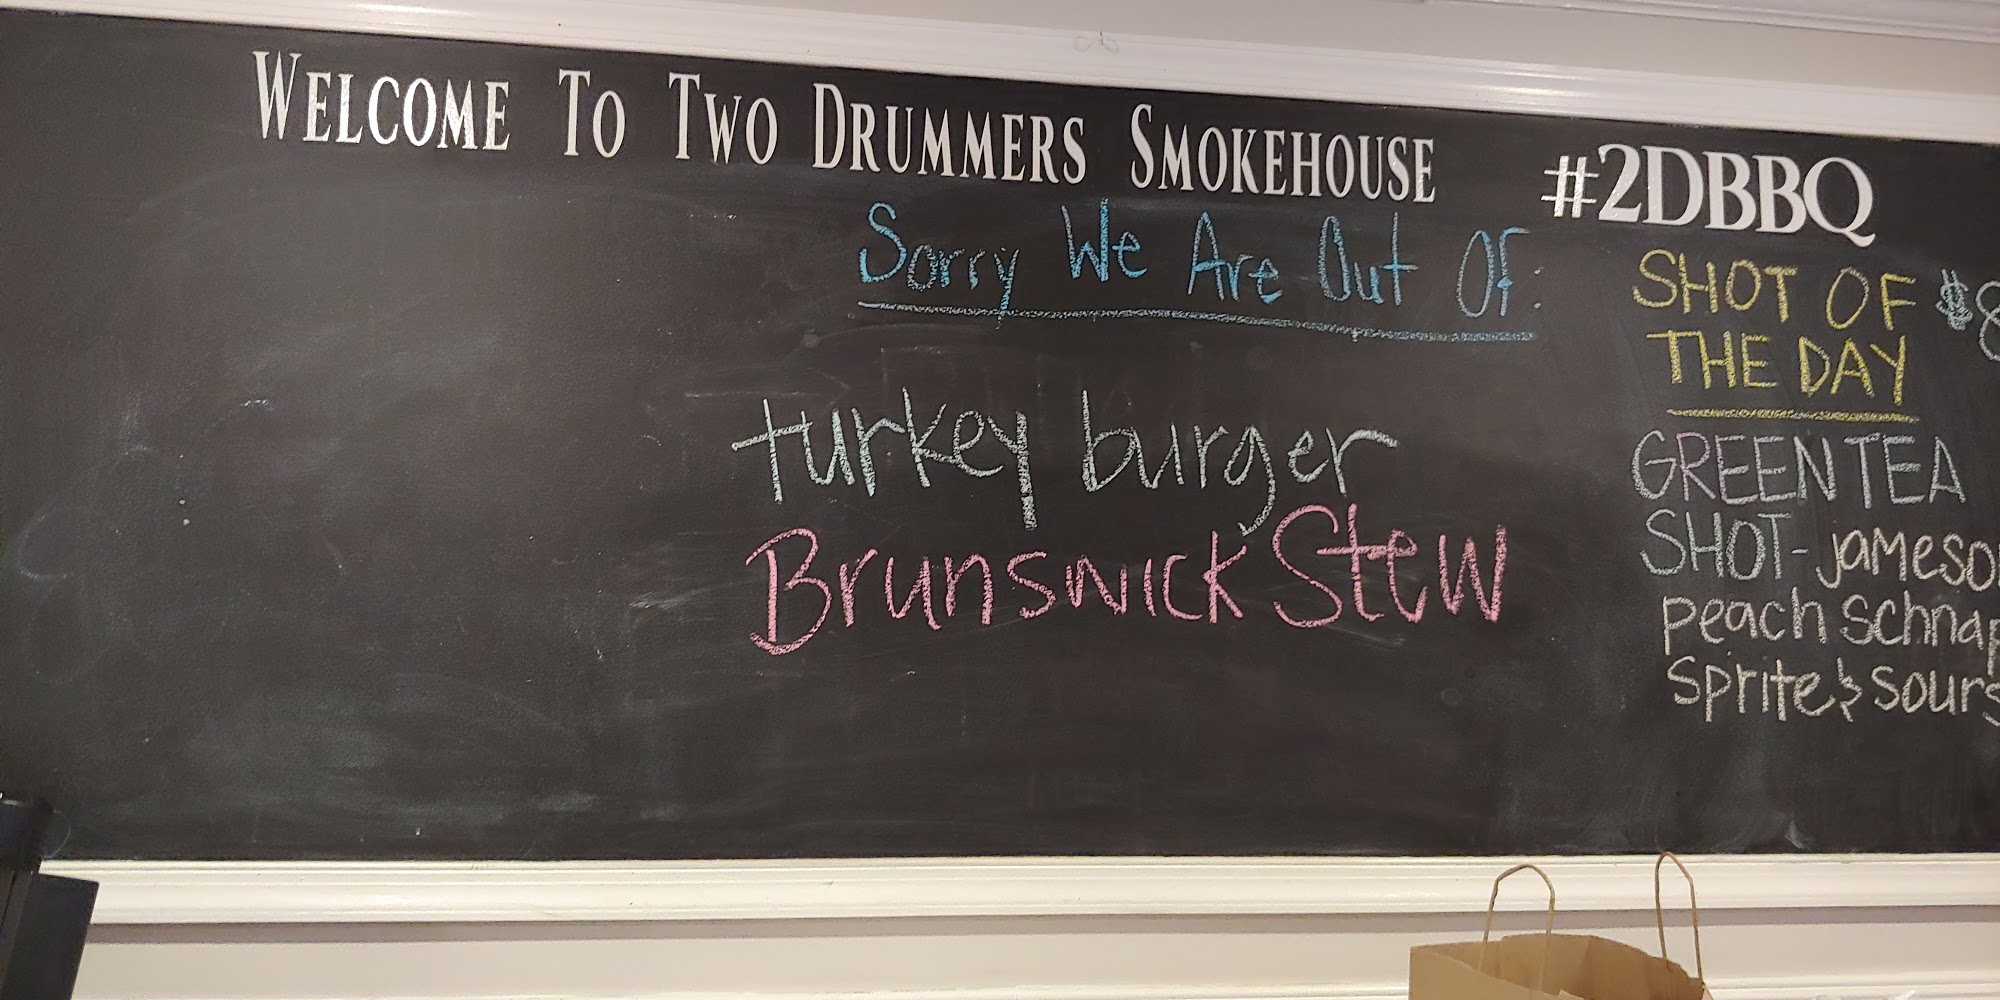 WELCOME TO TWO DRUMMERS SMOKEHOUSE
#2DBBQ
Sorry We Are Out Of:
turkey burger
Brunswick Stew
SHOT OF $8
THE DAY
GREEN TEA
SHOT-Jameso
peach Schnap
Sprite & Sours